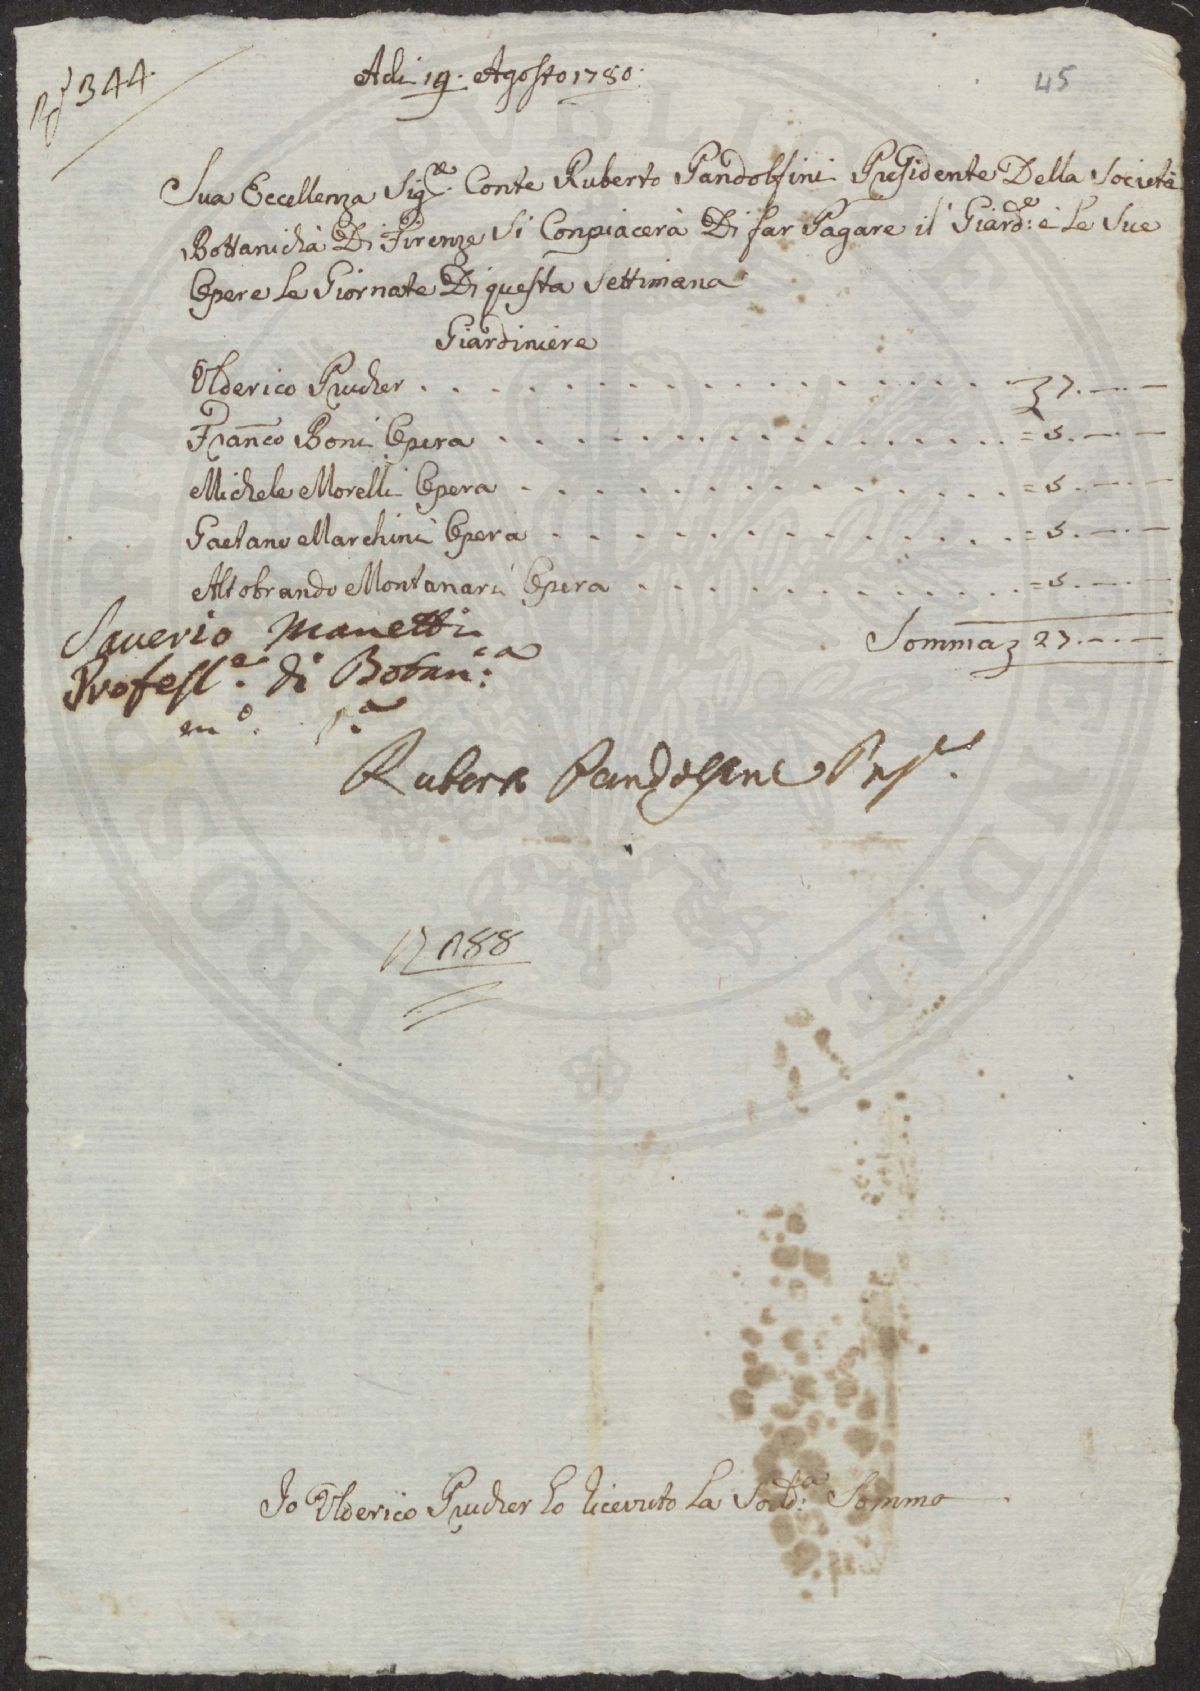 344
Adi 19. Agosto 1780.
45
Sua Eccellenza Sig.re Conte Ruberto Pandolfini Presidente Della Società
Bottanicha Di Firenze Si Conpiacerà Di far Pagare il Giard.e è Le Sue
Opere Le Giornate Di questa Settimana
Giardiniere
Ulderico Prucher . . . . . . . . . . . . . . . 7.—.—
Fran.co Boni Opera . . . . . . . . . . . . . . = 5.—.—
Michele Morelli Opera . . . . . . . . . . . . . = 5.—.—
Gaetano Marchini Opera . . . . . . . . . . . . = 5.—.—
Altobrando Montanari Opera . . . . . . . . . . = 5.—.—
Somma 27.—.—
Saverio Manetti
Profess.e di Botan.ca
m.o p.a
Ruberto Pandolfini Pres.e
188
Io Ulderico Prucher ho ricevuto La Sod.a Somma
PVBLICA
PROSPERITAS